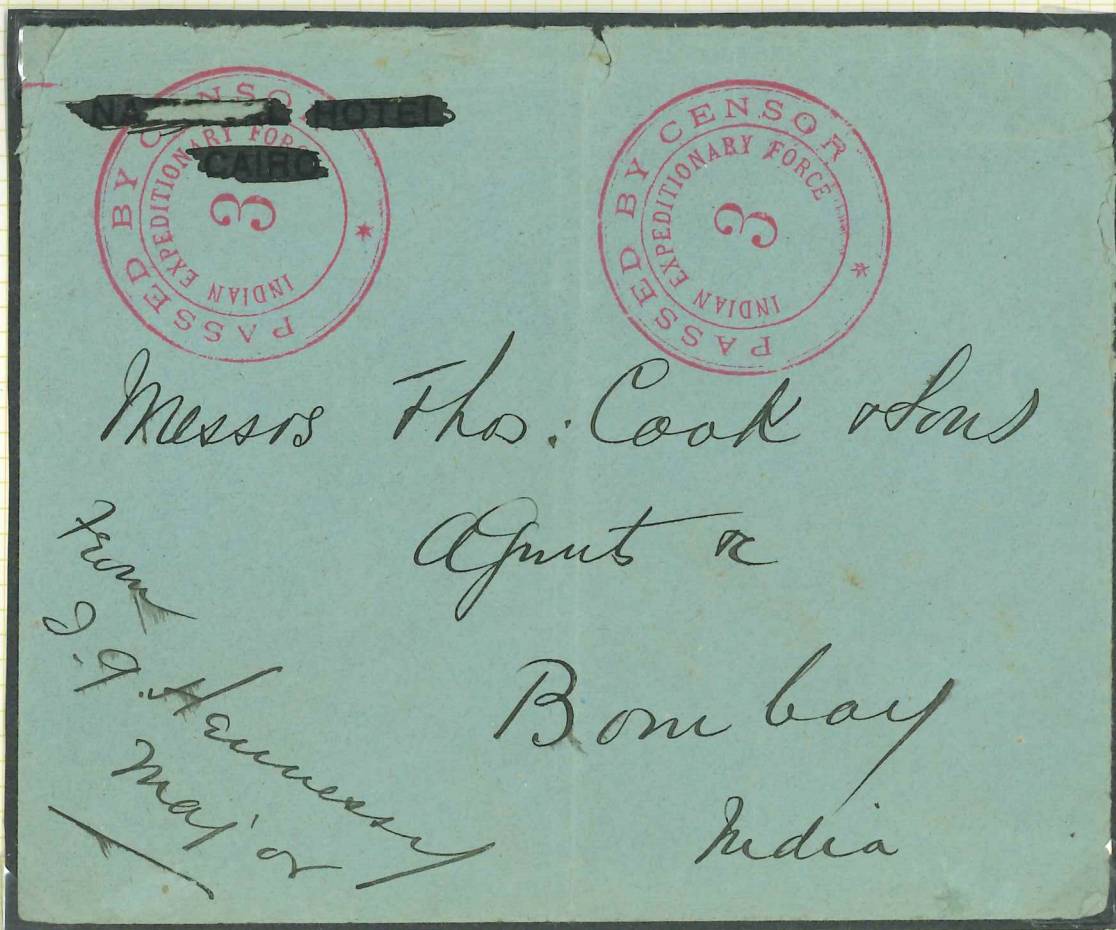 HOTEL
CAIRO
PASSED BY CENSOR *
INDIAN EXPEDITIONARY FORCE
3
PASSED BY CENSOR *
INDIAN EXPEDITIONARY FORCE
3
Messrs Thos: Cook & Sons
Agents &c
Bombay
India
From
J. G. Hennessy
Major